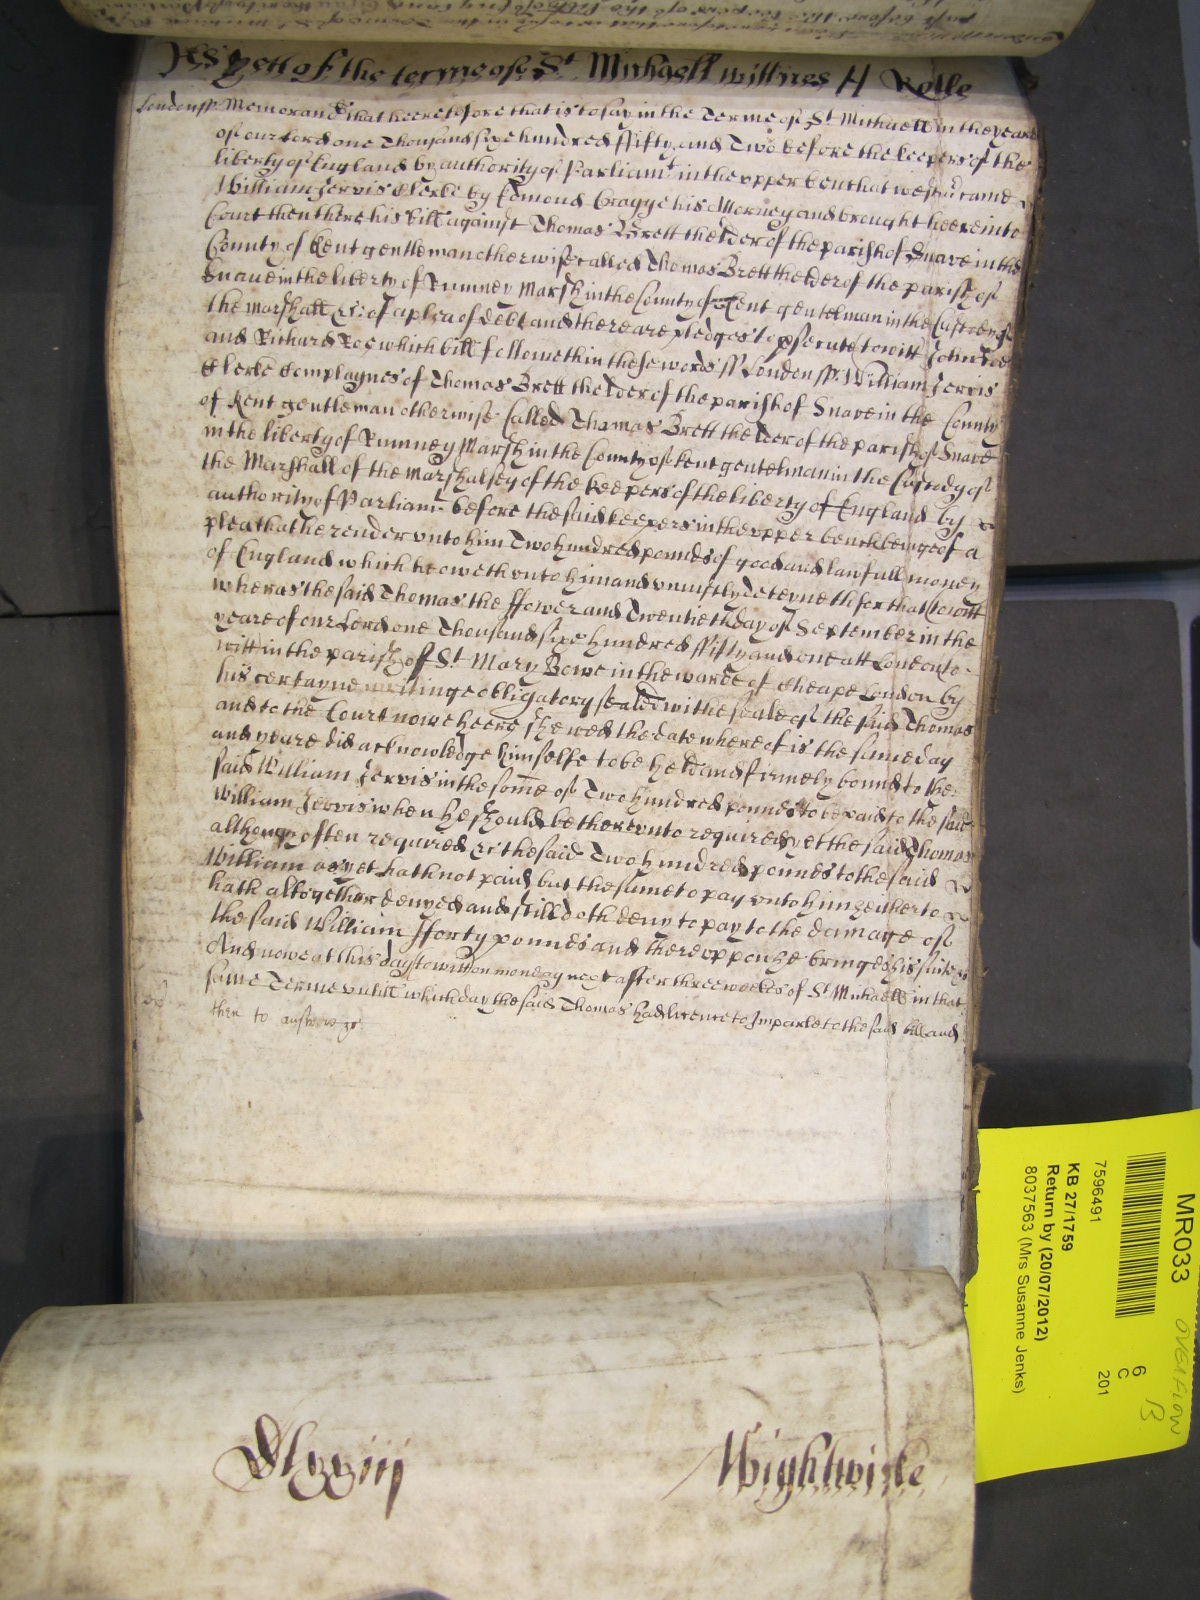 As yett of the terme of St Michaell wittnes H Rolle
London ss Memorand that heeretofore that is to say in the Terme of St Michaell in the yeare
of our Lord one Thousand sixe hundred fifty and Two before the keepers of the
liberty of England by authority of Parliamt in the vpper bench at westmr came
William Jervis Clerke by Edmond Cragge his Attorney and brought heere into
Court then there his bill against Thomas Brett thelder of the parish of Snave in the
County of Kent gentleman otherwise called Thomas Brett thelder of the parish of
Snave in the liberty of Rumney Marsh in the County of Kent gentelman in the Custody of
the Marshall &c of a plea of debt and there are pledges to psecute to witt John Doe
and Richard Roe which bill followeth in these words ss London ss William Jervis
Clerke Complaynes of Thomas Brett thelder of the parish of Snave in the County
of Kent gentleman otherwise Called Thomas Brett thelder of the parish of Snave
in the liberty of Rumney Marsh in the County of Kent gentelman in the Custody of
the Marshall of the Marshalsey of the keepers of the liberty of England by
authority of Parliamt before the said keepers in the vpper bench beinge of a
plea that he render vnto him Two hundred pounds of good and lawfull money
of England which he oweth vnto him and vniustly deteyneth for that to witt
wheras the said Thomas the ffower and Twentieth day of September in the
yeare of our Lord one Thousand sixe hundred fifty and one att London to
witt in the parish of St Mary Bowe in the warde of Cheape London by
his certayne writinge obligatory sealed withe seale of the said Thomas
and to the Court nowe heere shewed the date where of is the same day
and yeare did acknowledge himselfe to be held and firmely bound to the
said William Jervis in the some of Two hundred pounds to be paid to the said
William Jervis when he should be therevnto required yet the said Thomas
although often required &c the said Two hundred pounds to the said
William as yet hath not paid but the same to pay vnto him hitherto
hath altogether denyed and still doth deny to pay to the damage of
the said William fforty pounds and therevppon he bringes his suite &c
And nowe at this day to witt on monday next after three weekes of St Michaell in that
same Terme vntill which day the said Thomas had licence to Imparle to the said bill and
then to answere &c
Wightwicke
MR033
7596491
KB 27/1759
Return by (20/07/2012)
8037563 (Mrs Susanne Jenks)
6
C
201
OVERFLOW
B